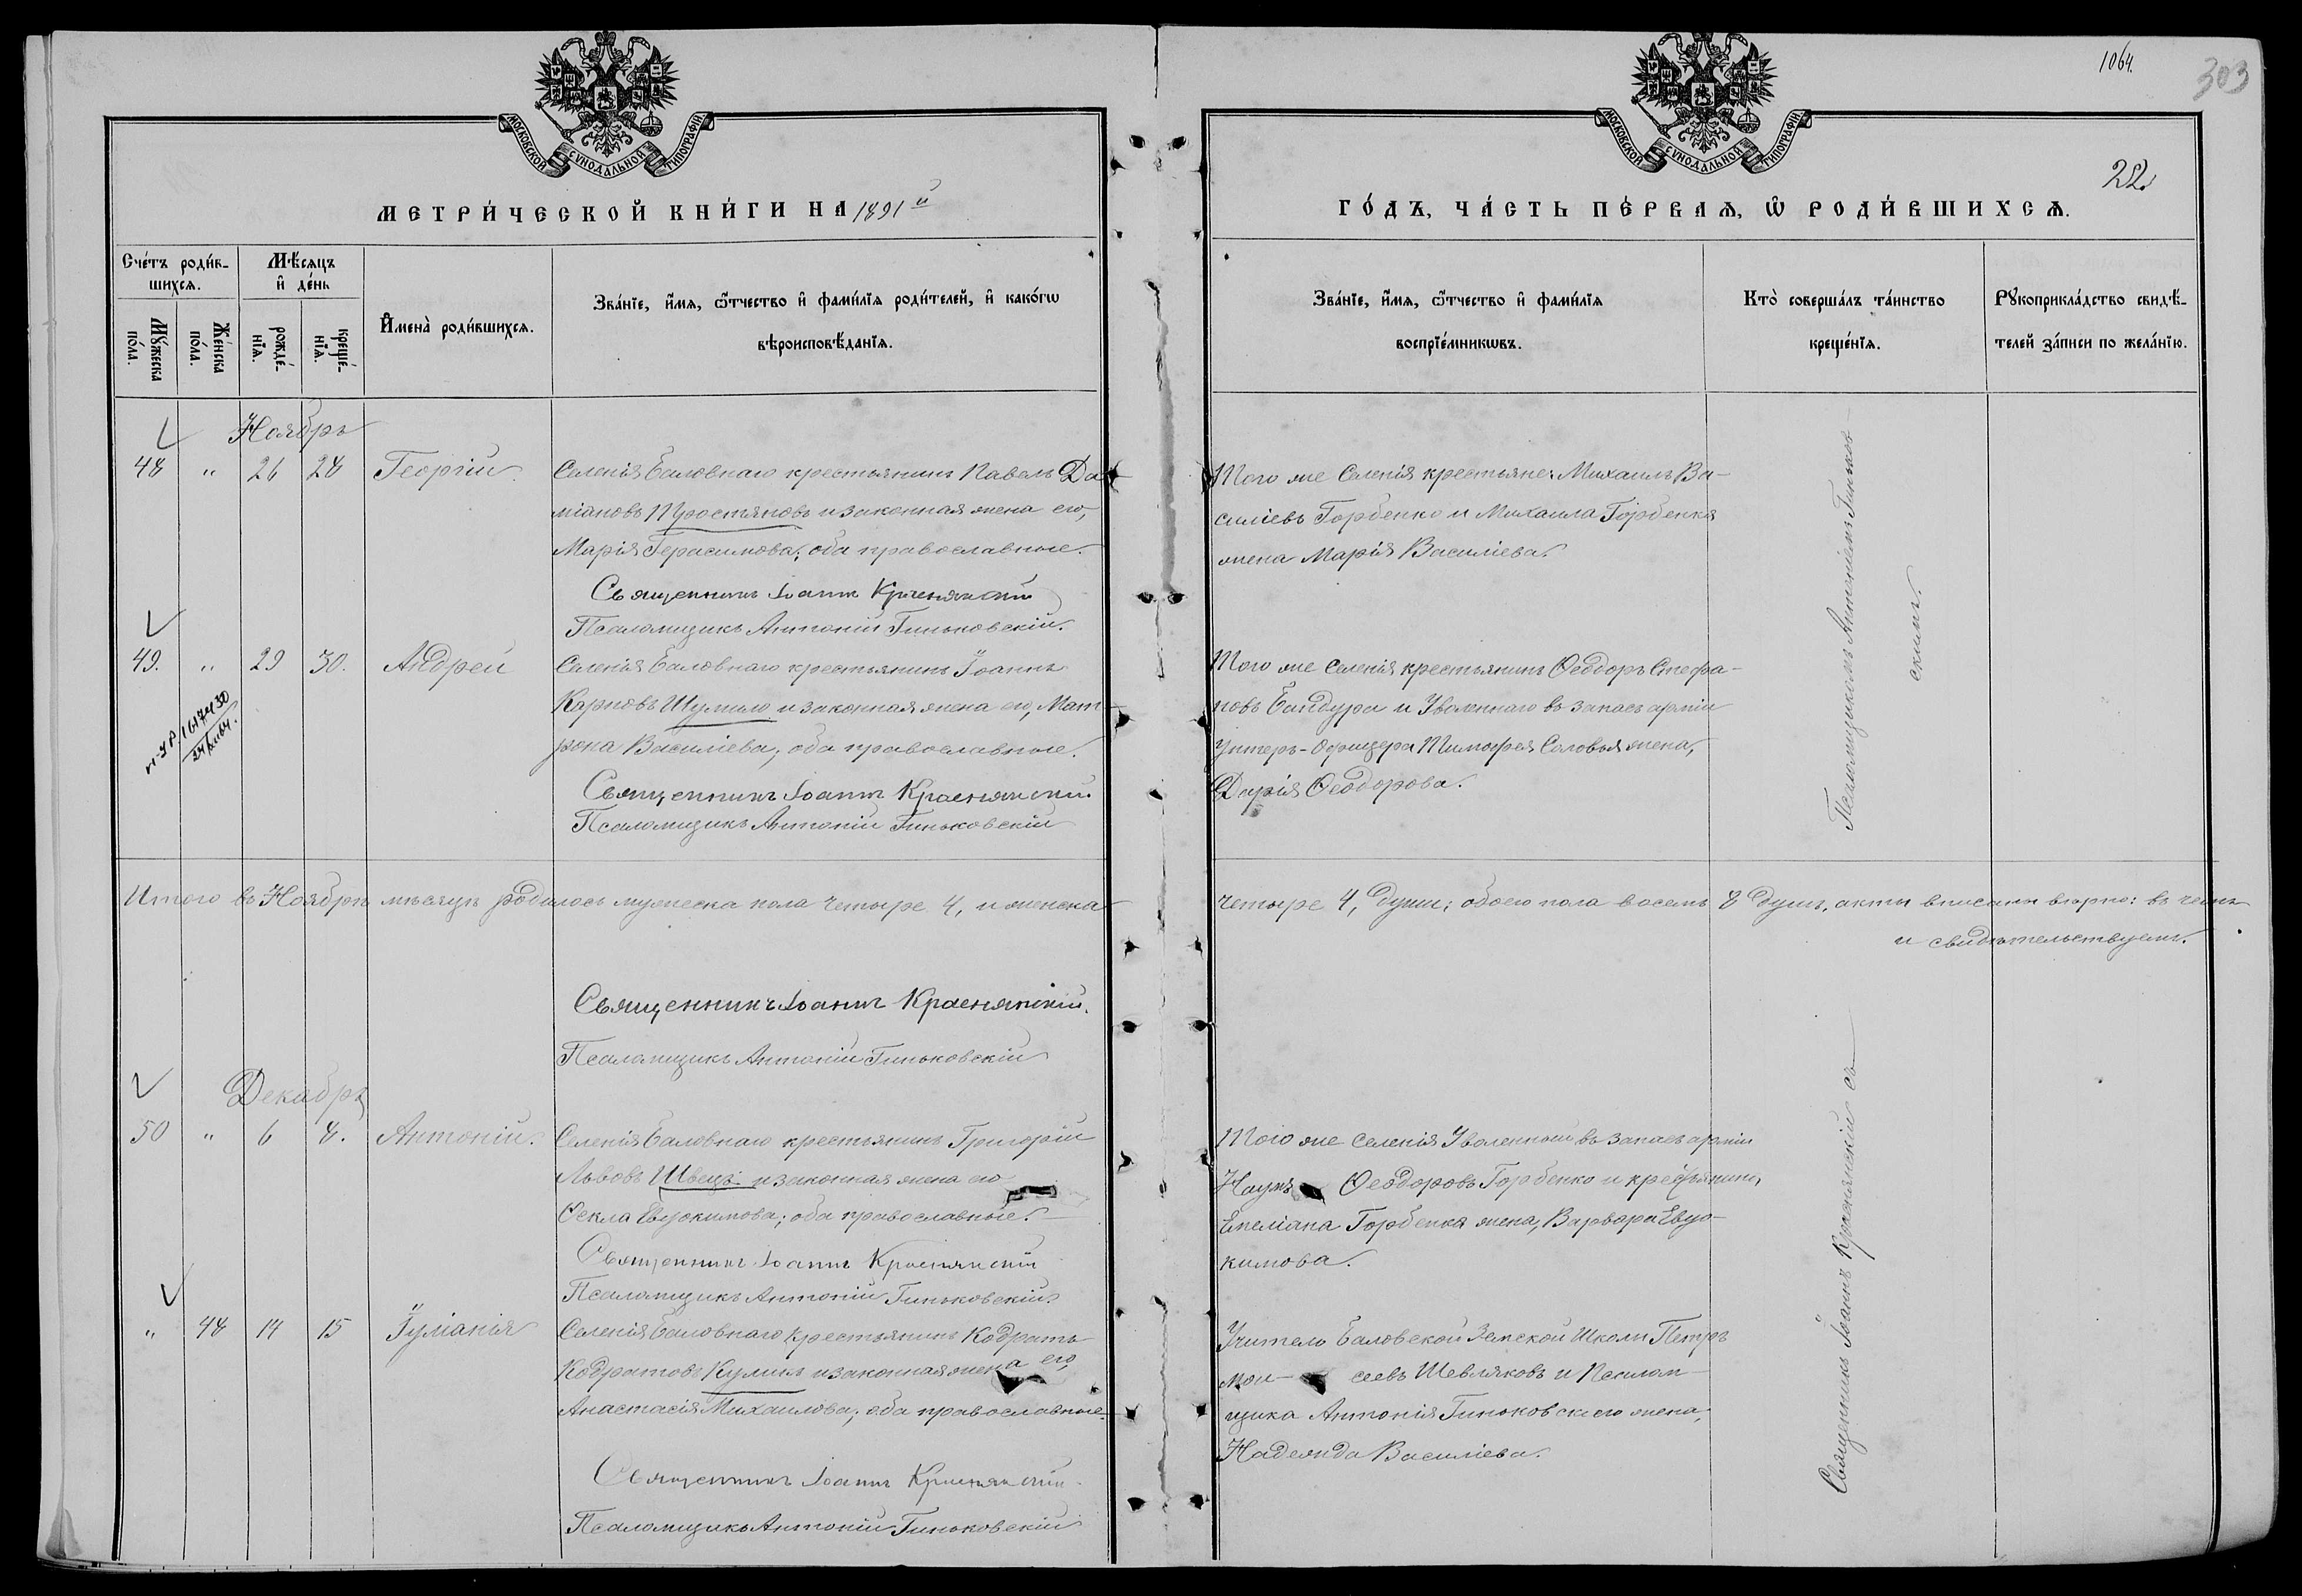 1064.
303
МОСКОВСКОЙ СѴНОДАЛЬНОЙ ТИПОГРАФІИ
МОСКОВСКОЙ СѴНОДАЛЬНОЙ ТИПОГРАФІИ
22.
МЕТРИ́ЧЕСКОЙ КНИ́ГИ НА 1891й
ГО́ДЪ, ЧА́СТЬ ПЕ́РВАѦ, Ѡ РОДИ́ВШИХСѦ.
Сче́тъ роди́в-
шихсѧ.
Мꙋ́жеска
по́ла.
Же́нска
по́ла.
Мѣ́сѧцъ
и҆ де́нь
рожде́-
нїѧ.
креще́-
нїѧ.
И҆мена̀ роди́вшихсѧ.
Зва́нїе, и҆́мѧ, ѻ҆́тчество и҆ фами́лїѧ роди́телей, и҆ како́гѡ
вѣроисповѣ́данїѧ.
Зва́нїе, и҆́мѧ, ѻ҆́тчество и҆ фами́лїѧ
воспрїе́мникѡвъ.
Кто̀ соверша́лъ та́инство
креще́нїѧ.
Рꙋкоприкла́дство свидѣ́-
телей за́писи по жела́нїю.
Ноябрь
48 " 26 28 Георгій.
Селенія Баловнаго крестьянинъ Павелъ Да-
міановъ Простяковъ и законная жена его,
Марія Герасимова; оба православные.
Священникъ Іоаннъ Краснянскій
Псаломщикъ Антоній Гиньковскій.
Того же селенія крестьяне: Михаилъ Ва-
силіевъ Горбенко и Михаила Горбенка
жена Марія Василіева.
Псаломщикомъ Антоніемъ Гиньков-
скимъ.
49. " 29 30. Андрей
Селенія Баловнаго крестьянинъ Іоаннъ
Карповъ Шумило и законная жена его, Мат-
рона Василіева; оба православные.
Священникъ Іоаннъ Краснянскій.
Псаломщикъ Антоній Гиньковскій
Того же селенія крестьянинъ Ѳеодоръ Стефа-
новъ Бандура и Уволеннаго въ запасъ арміи
Унтеръ-Офицера Тимофея Соловья жена,
Дарія Ѳеодорова.
Итого въ Ноябрѣ мѣсяцѣ родилось мужеска пола четыре 4, и женска
четыре 4, души; обоего пола восемь 8 душъ, акты вписаны вѣрно: въ чемъ
и свидѣтельствуемъ.
Священникъ Іоаннъ Краснянскій.
Псаломщикъ Антоній Гиньковскій
Декабрь
50 " 6 8. Антоній.
Селенія Баловнаго крестьянинъ Григорій
Львовъ Швецъ и законная жена его
Ѳекла Евдокимова; оба православные.
Священникъ Іоаннъ Краснянскій
Псаломщикъ Антоній Гиньковскій.
Того же селенія Уволенный въ запасъ арміи
Наумъ Ѳеодоровъ Горбенко и крестьянина
Емеліана Горбенка жена, Варвара Евдо-
кимова.
Священникъ Іоаннъ Краснянскій съ
" 48 14 15 Іуліанія
Селенія Баловнаго крестьянинъ Кодратъ
Кодратовъ Куликъ и законная жена его,
Анастасія Михаилова; оба православные.
Священникъ Іоаннъ Краснянскій
Псаломщикъ Антоній Гиньковскій
Учитель Баловской Земской Школы Петръ
Мои- сеевъ Шевляковъ и Псалом-
щика Антонія Гиньковскаго жена,
Надежда Василіева.